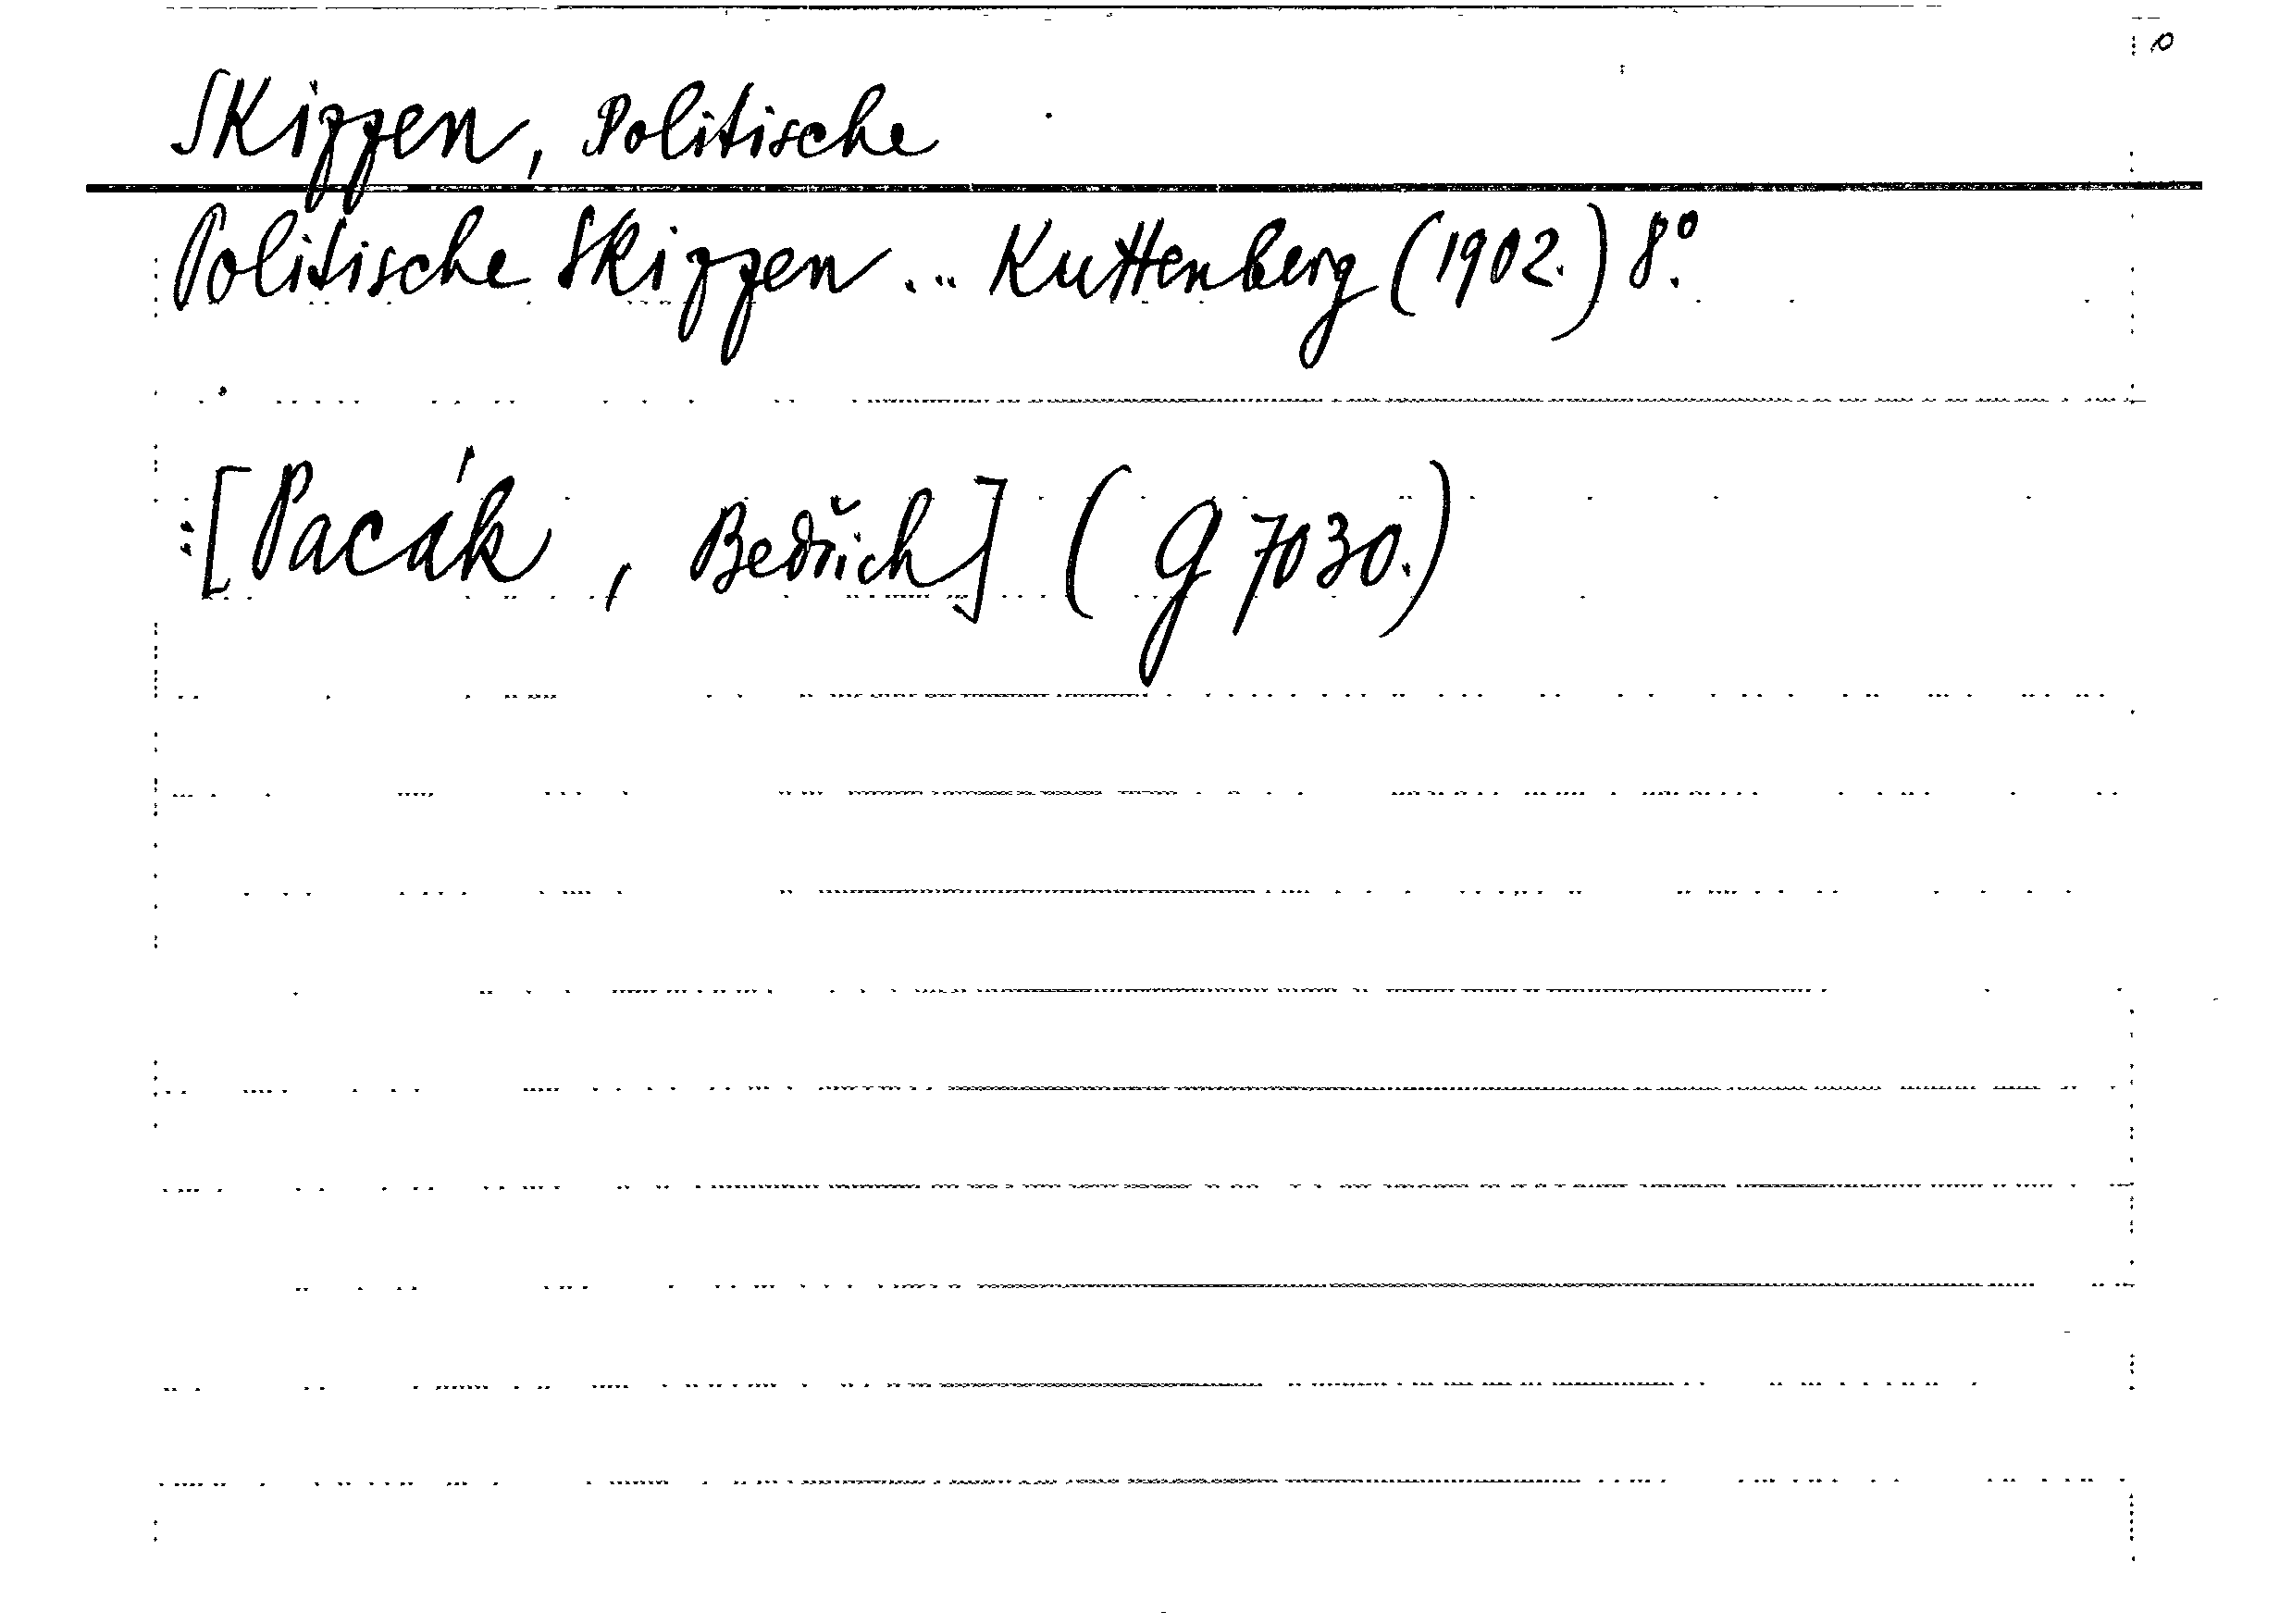 Skizzen, Politische
Politische Skizzen ... Kuttenberg (1902.) 8°.
[Pacák, Bedřich] (G 7030.)